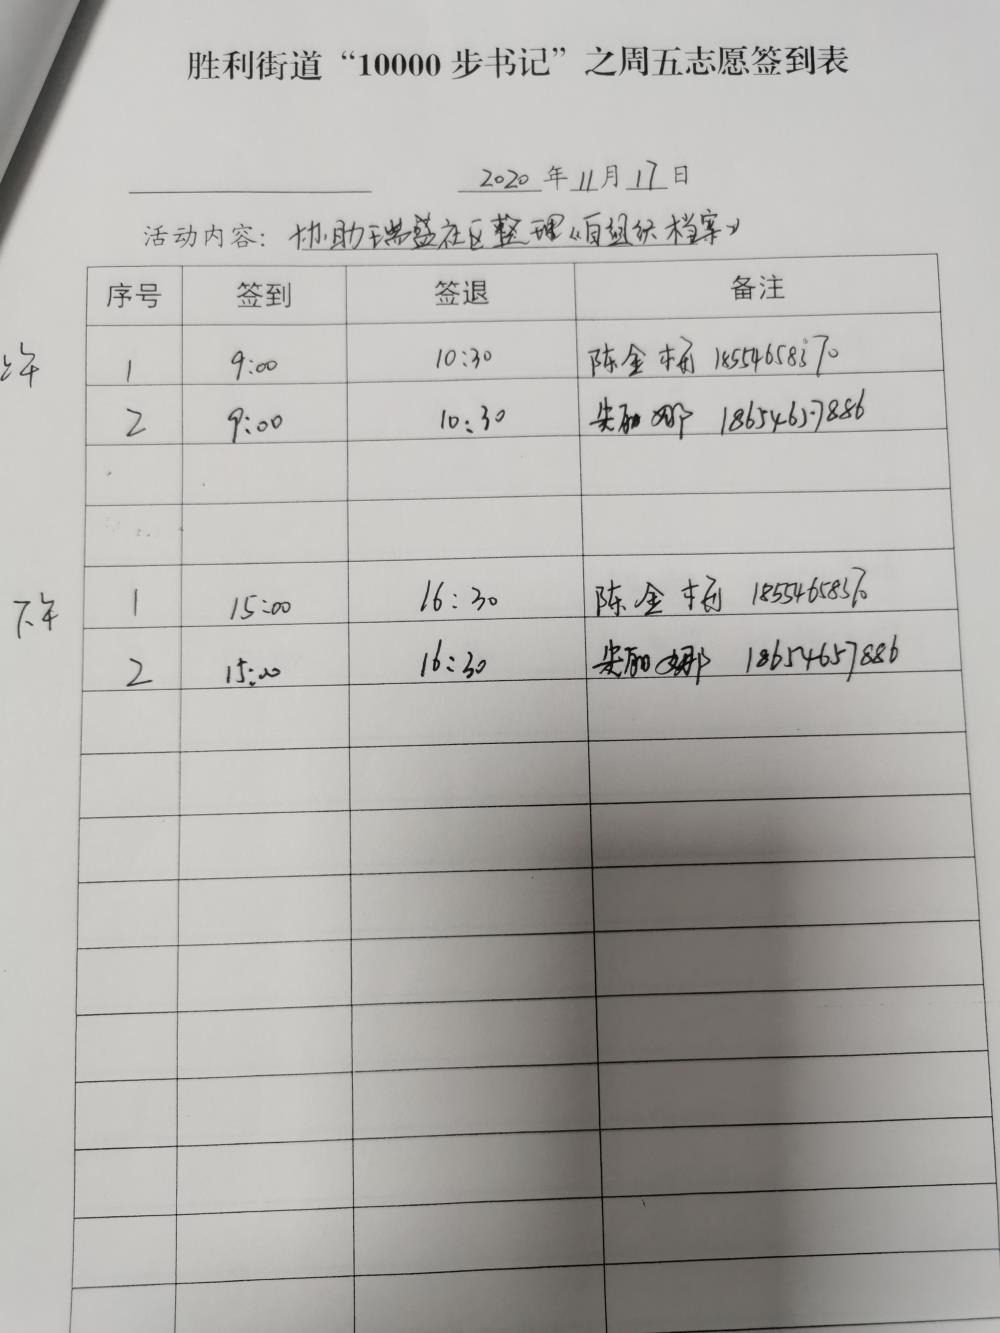 胜利街道“10000步书记”之周五志愿签到表
2020年11月17日
活动内容：协助瑞盛社区整理《自组织档案》
序号 签到 签退 备注
上午 1 9:00 10:30 陈金 18554658370
2 9:00 10:30 娜 18654657886
下午 1 15:00 16:30 陈金 18554658370
2 15:00 16:30 娜 18654657886